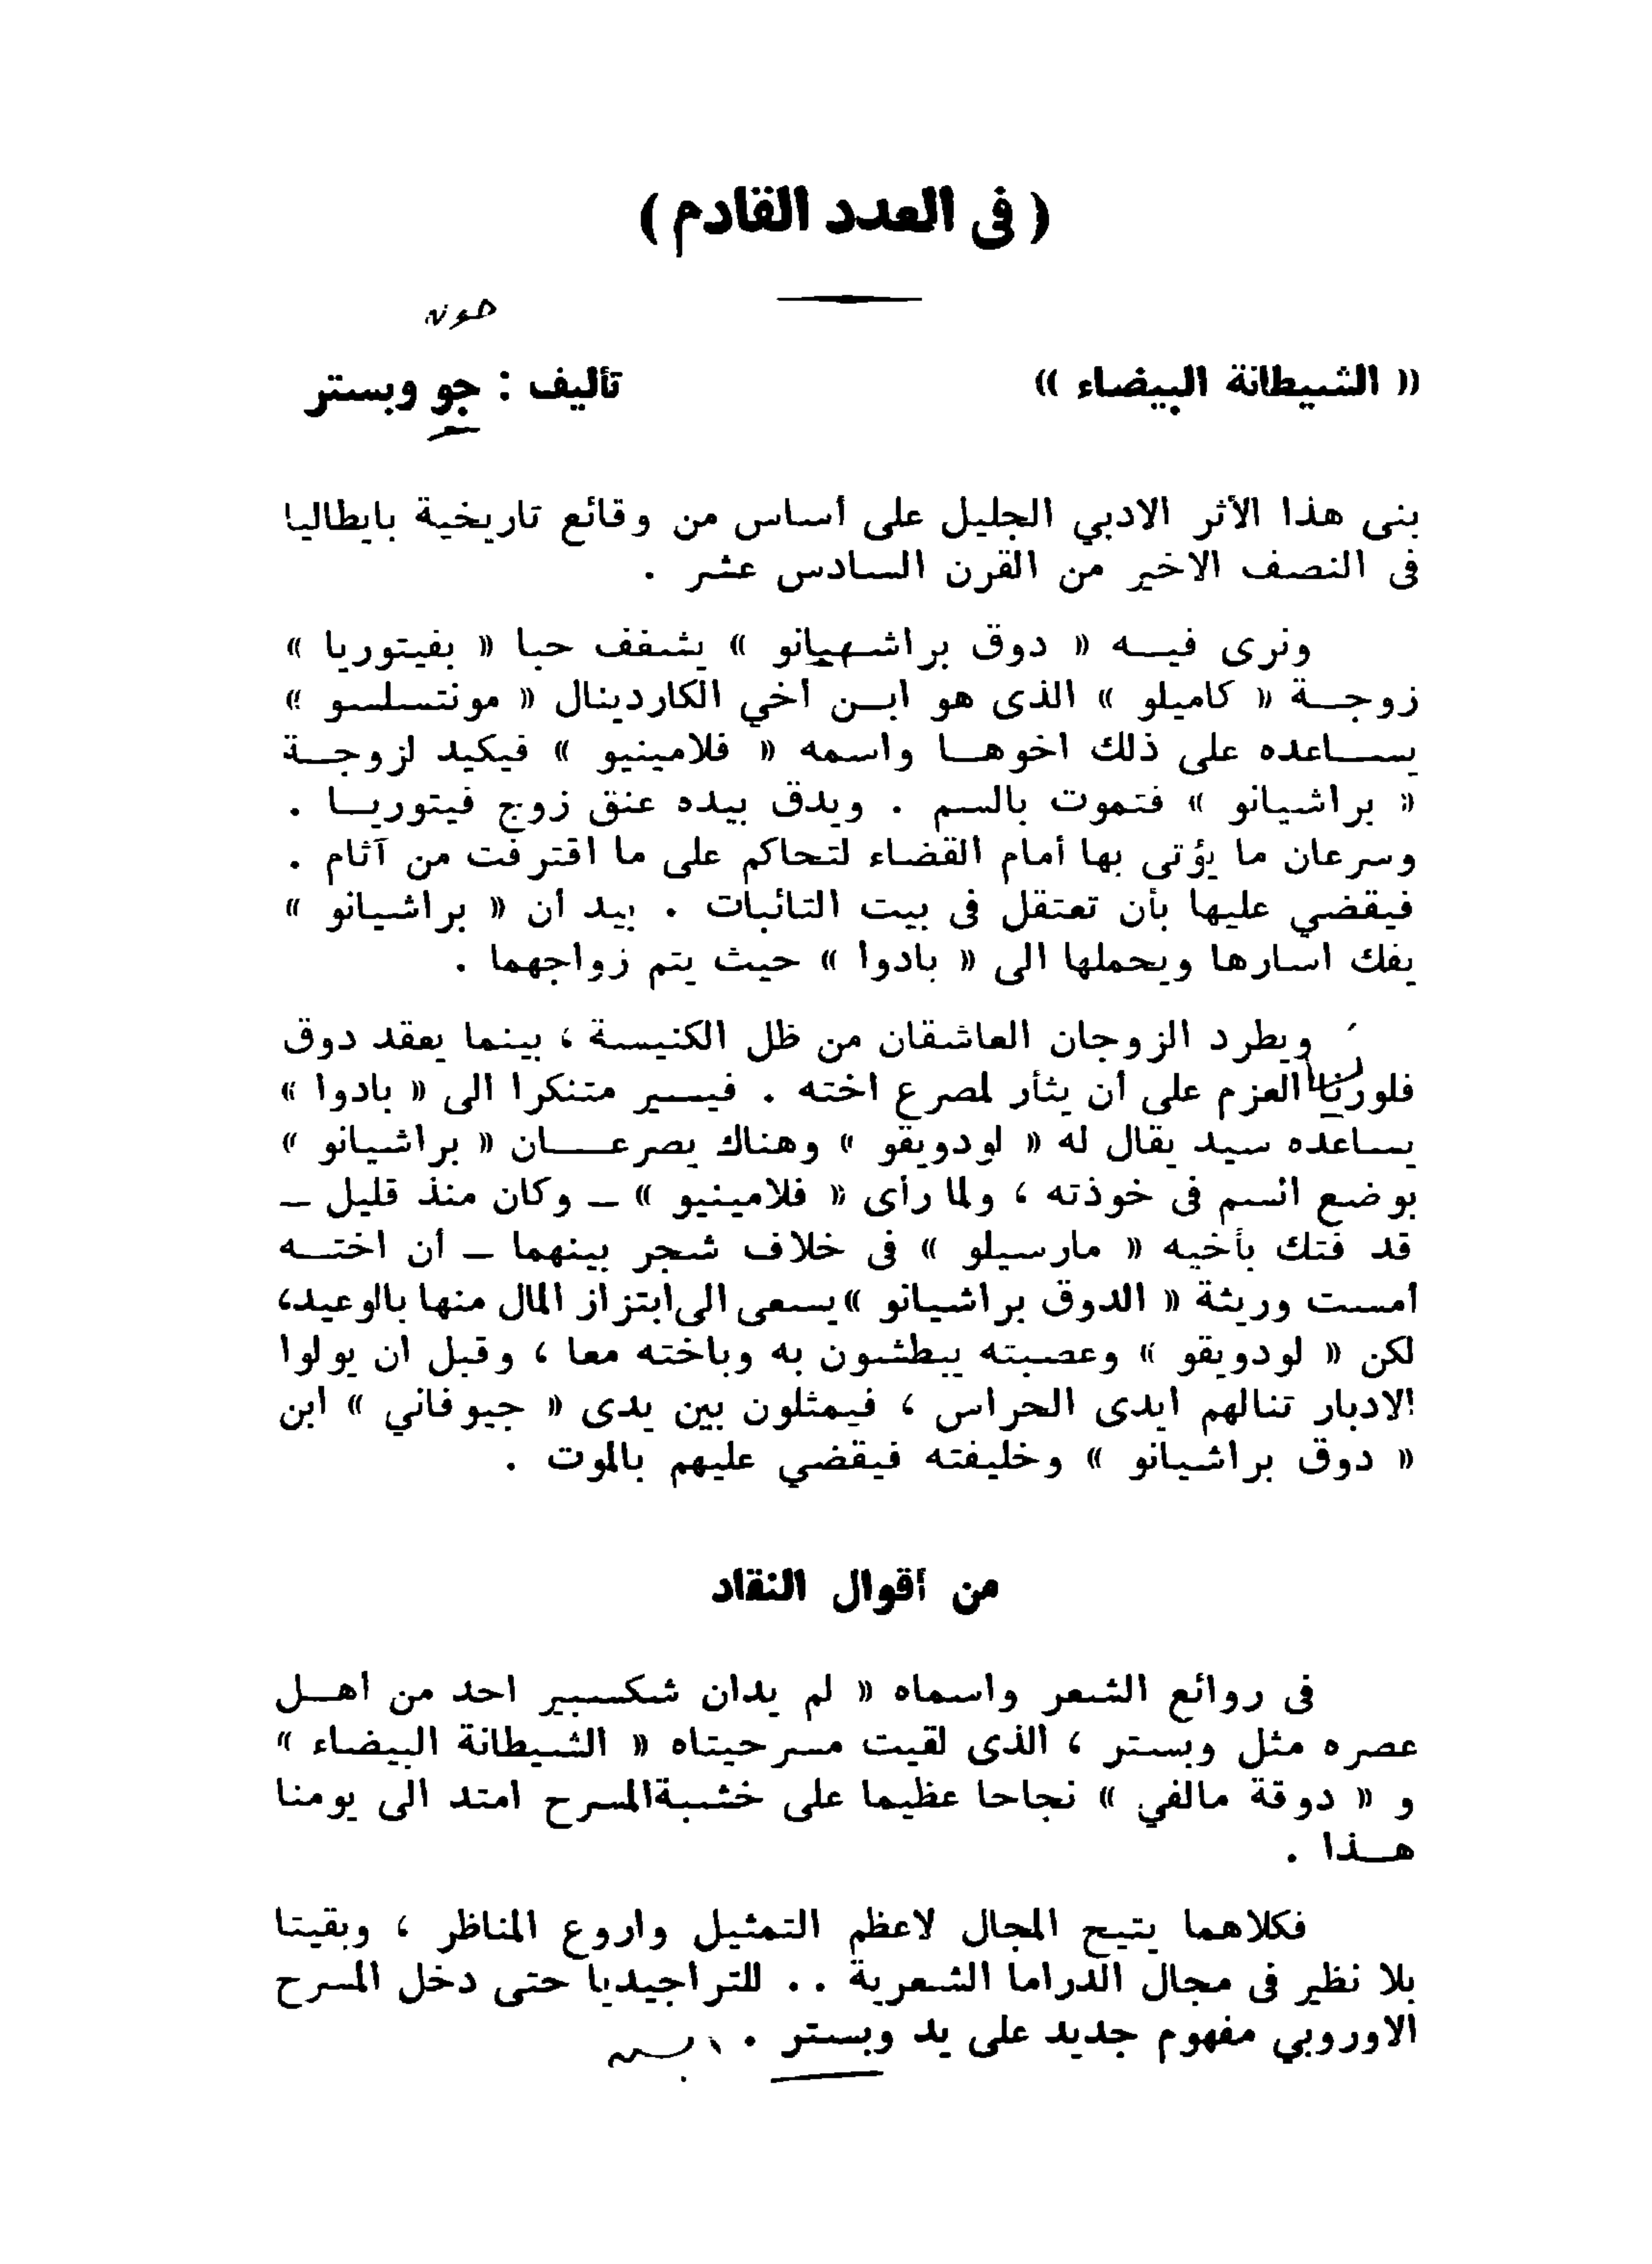 ( فى العدد القادم )
جون
« الشيطانة البيضاء » تأليف : جو وبستر
بنى هذا الأثر الادبي الجليل على أساس من وقائع تاريخية بايطاليا
فى النصف الاخير من القرن السادس عشر .
ونرى فيـه « دوق براشهيانو » يشغف حبا « بفيتوريا »
زوجـة « كاميلو » الذى هو ابـن أخي الكاردينال « مونتسلسو »
يسـاعده على ذلك اخوهـا واسمه « فلامينيو » فيكيد لزوجـة
« براشيانو » فتموت بالسم . ويدق بيده عنق زوج فيتوريـا .
وسرعان ما يؤتى بها أمام القضاء لتحاكم على ما اقترفت من آثام .
فيقضي عليها بأن تعتقل فى بيت التائبات . بيد أن « براشيانو »
يفك اسارها ويحملها الى « بادوا » حيث يتم زواجهما .
ويطرد الزوجان العاشقان من ظل الكنيسة ، بينما يعقد دوق
فلورنسا العزم على أن يثأر لمصرع اخته . فيسير متنكرا الى « بادوا »
يساعده سيد يقال له « لودويقو » وهناك يصرعـان « براشيانو »
بوضع السم فى خوذته ، ولما رأى « فلامينيو » ـ وكان منذ قليل ـ
قد فتك بأخيه « مارسيلو » فى خلاف شجر بينهما ـ أن اختـه
أمست وريثة « الدوق براشيانو » يسعى الى ابتزاز المال منها بالوعيد،
لكن « لودويقو » وعصبته يبطشون به وباخته معا ، وقبل ان يولوا
الادبار تنالهم ايدى الحراس ، فيمثلون بين يدى « جيوفاني » ابن
« دوق براشيانو » وخليفته فيقضي عليهم بالموت .
من أقوال النقاد
فى روائع الشعر واسماه « لم يدان شكسبير احد من اهـل
عصره مثل وبستر ، الذى لقيت مسرحيتاه « الشيطانة البيضاء »
و « دوقة مالفي » نجاحا عظيما على خشبة المسرح امتد الى يومنا
هـذا .
فكلاهما يتيح المجال لاعظم التمثيل واروع المناظر ، وبقيتا
بلا نظير فى مجال الدراما الشعرية . . للتراجيديا حتى دخل المسرح
الاوروبي مفهوم جديد على يد وبستر .